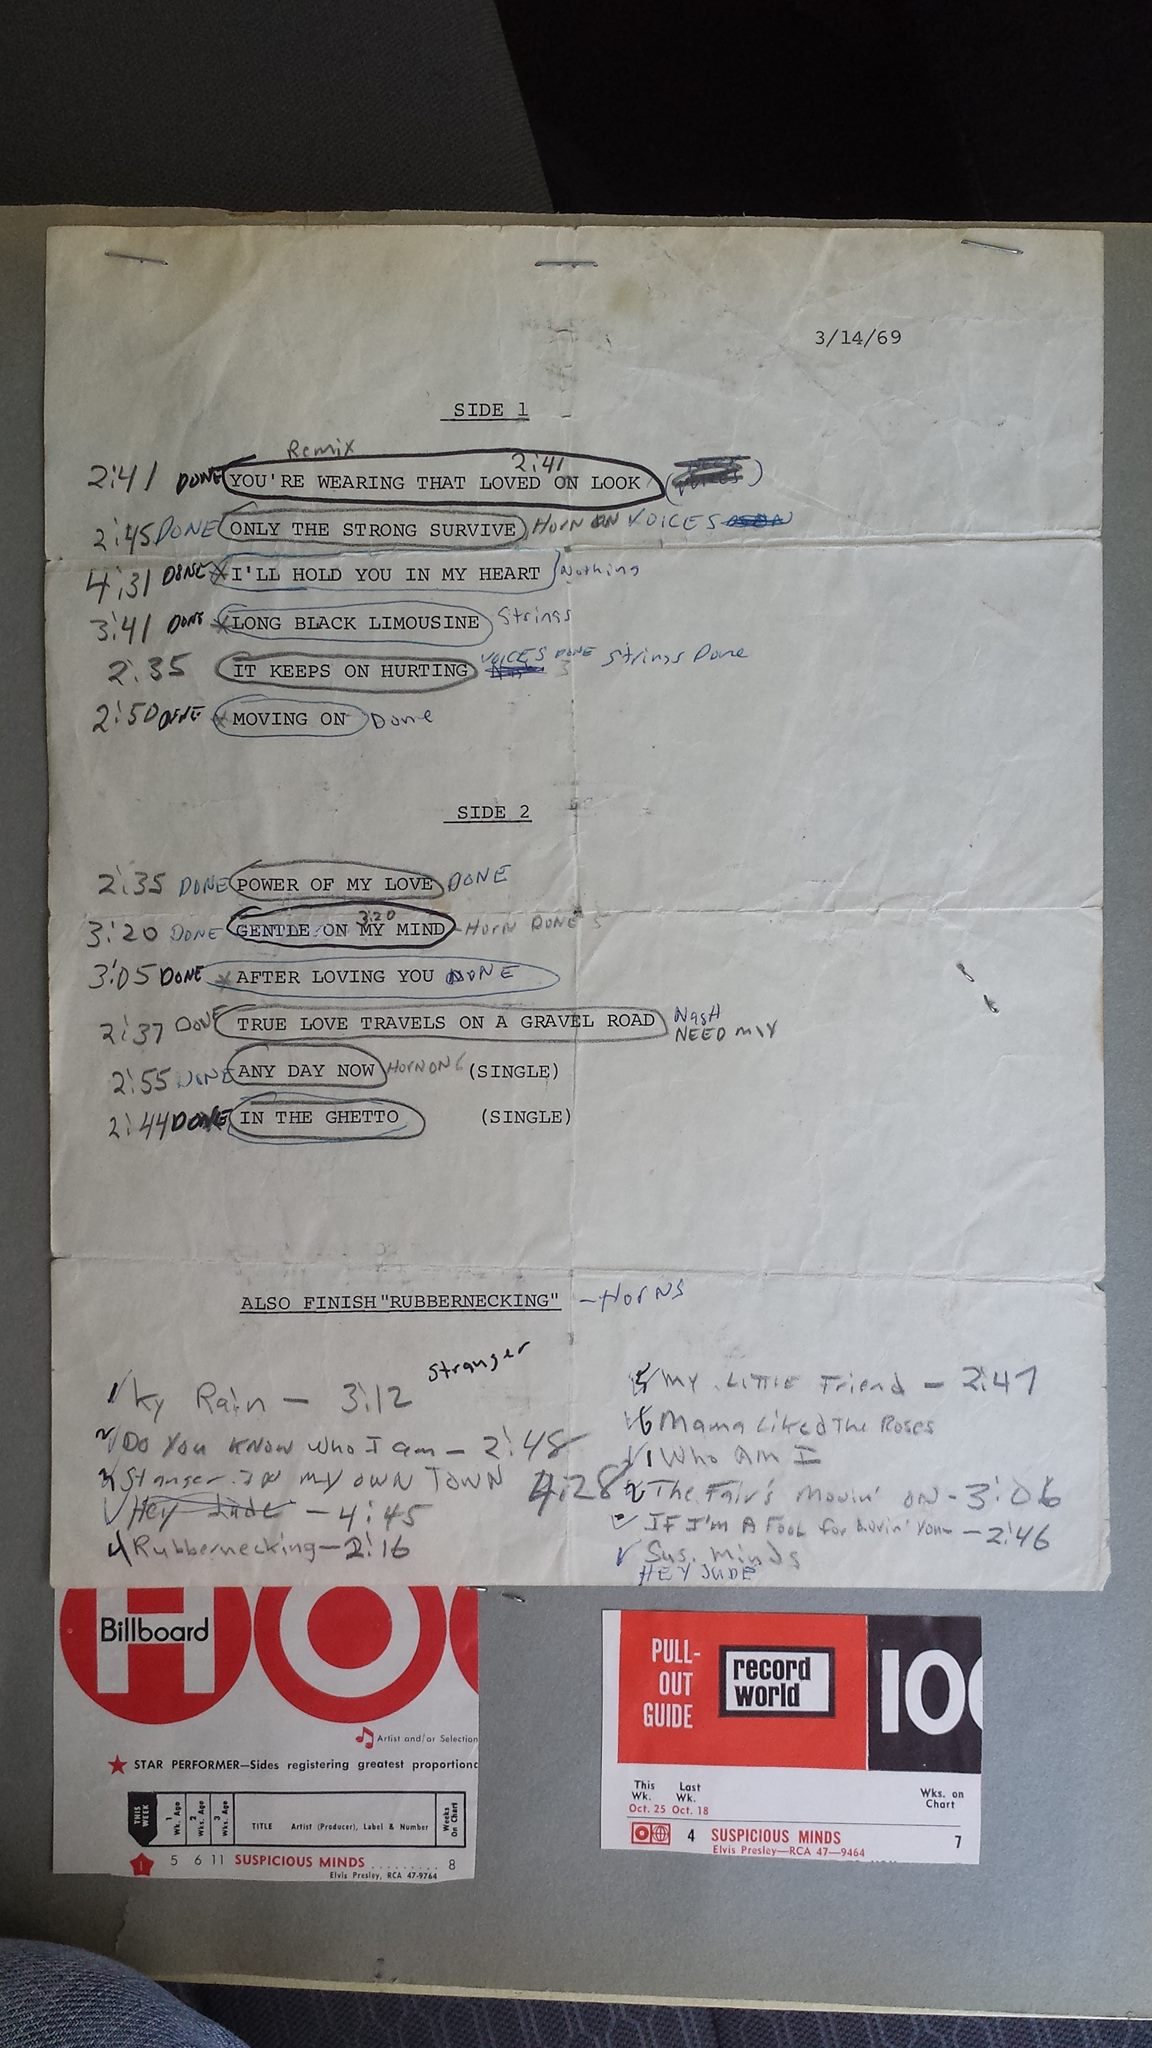 3/14/69
SIDE 1
Remix
2:41 DONE YOU'RE WEARING THAT LOVED ON LOOK 2:41
2:45 DONE ONLY THE STRONG SURVIVE HORN ON VOICES
4:31 DONE X I'LL HOLD YOU IN MY HEART Nothing
3:41 DONE X LONG BLACK LIMOUSINE Strings
2:35 IT KEEPS ON HURTING VOICES DONE 3 Strings Done
2:50 DONE X MOVING ON Done
SIDE 2
2:35 DONE POWER OF MY LOVE DONE
3:20 DONE GENTLE ON MY MIND 3:20 - HORN DONE 5
3:05 DONE X AFTER LOVING YOU DONE
2:37 DONE TRUE LOVE TRAVELS ON A GRAVEL ROAD NasH
NEED MIX
2:55 DONE ANY DAY NOW HORN ON 6 (SINGLE)
2:44 DONE IN THE GHETTO (SINGLE)
ALSO FINISH "RUBBERNECKING" - HORNS
Stranger
Ky Rain - 3:12
Do You Know Who I am - 2:48
Stanger In my OWN TOWN 4:28
Hey Jude - 4:45
Rubbernecking - 2:16
5 My Little Friend - 2:47
6 Mama Liked The Roses
1 Who Am I
The Fair's Movin' ON - 3:06
IF I'M A Fool for Lovin' You - 2:46
Sus. Minds
HEY JUDE
Billboard HO
Artist and/or Selection
★ STAR PERFORMER—Sides registering greatest proportion
THIS WEEK 1 Wk. Ago 2 Wks. Ago 3 Wks. Ago TITLE Artist (Producer), Label & Number Weeks On Chart
1 5 6 11 SUSPICIOUS MINDS ........ 8
Elvis Presley, RCA 47-9764
PULL-
OUT
GUIDE
record
world
100
This Last
Wk. Wk. Wks. on
Oct. 25 Oct. 18 Chart
4 SUSPICIOUS MINDS 7
Elvis Presley—RCA 47—9464